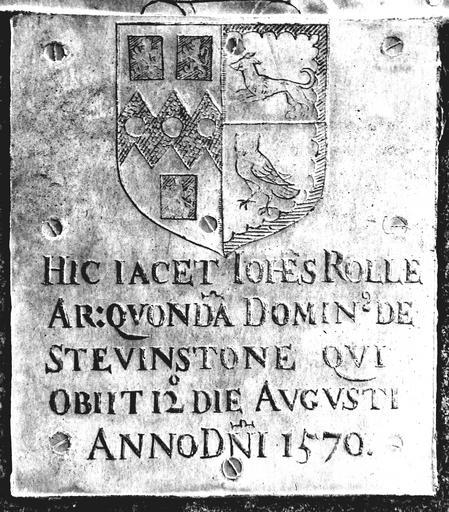 HIC IACET IOHES ROLLE
AR: QVONDA DOMINꝰ DE
STEVINSTONE QVI
OBIIT 12º DIE AVGVSTI
ANNO DNI 1570.